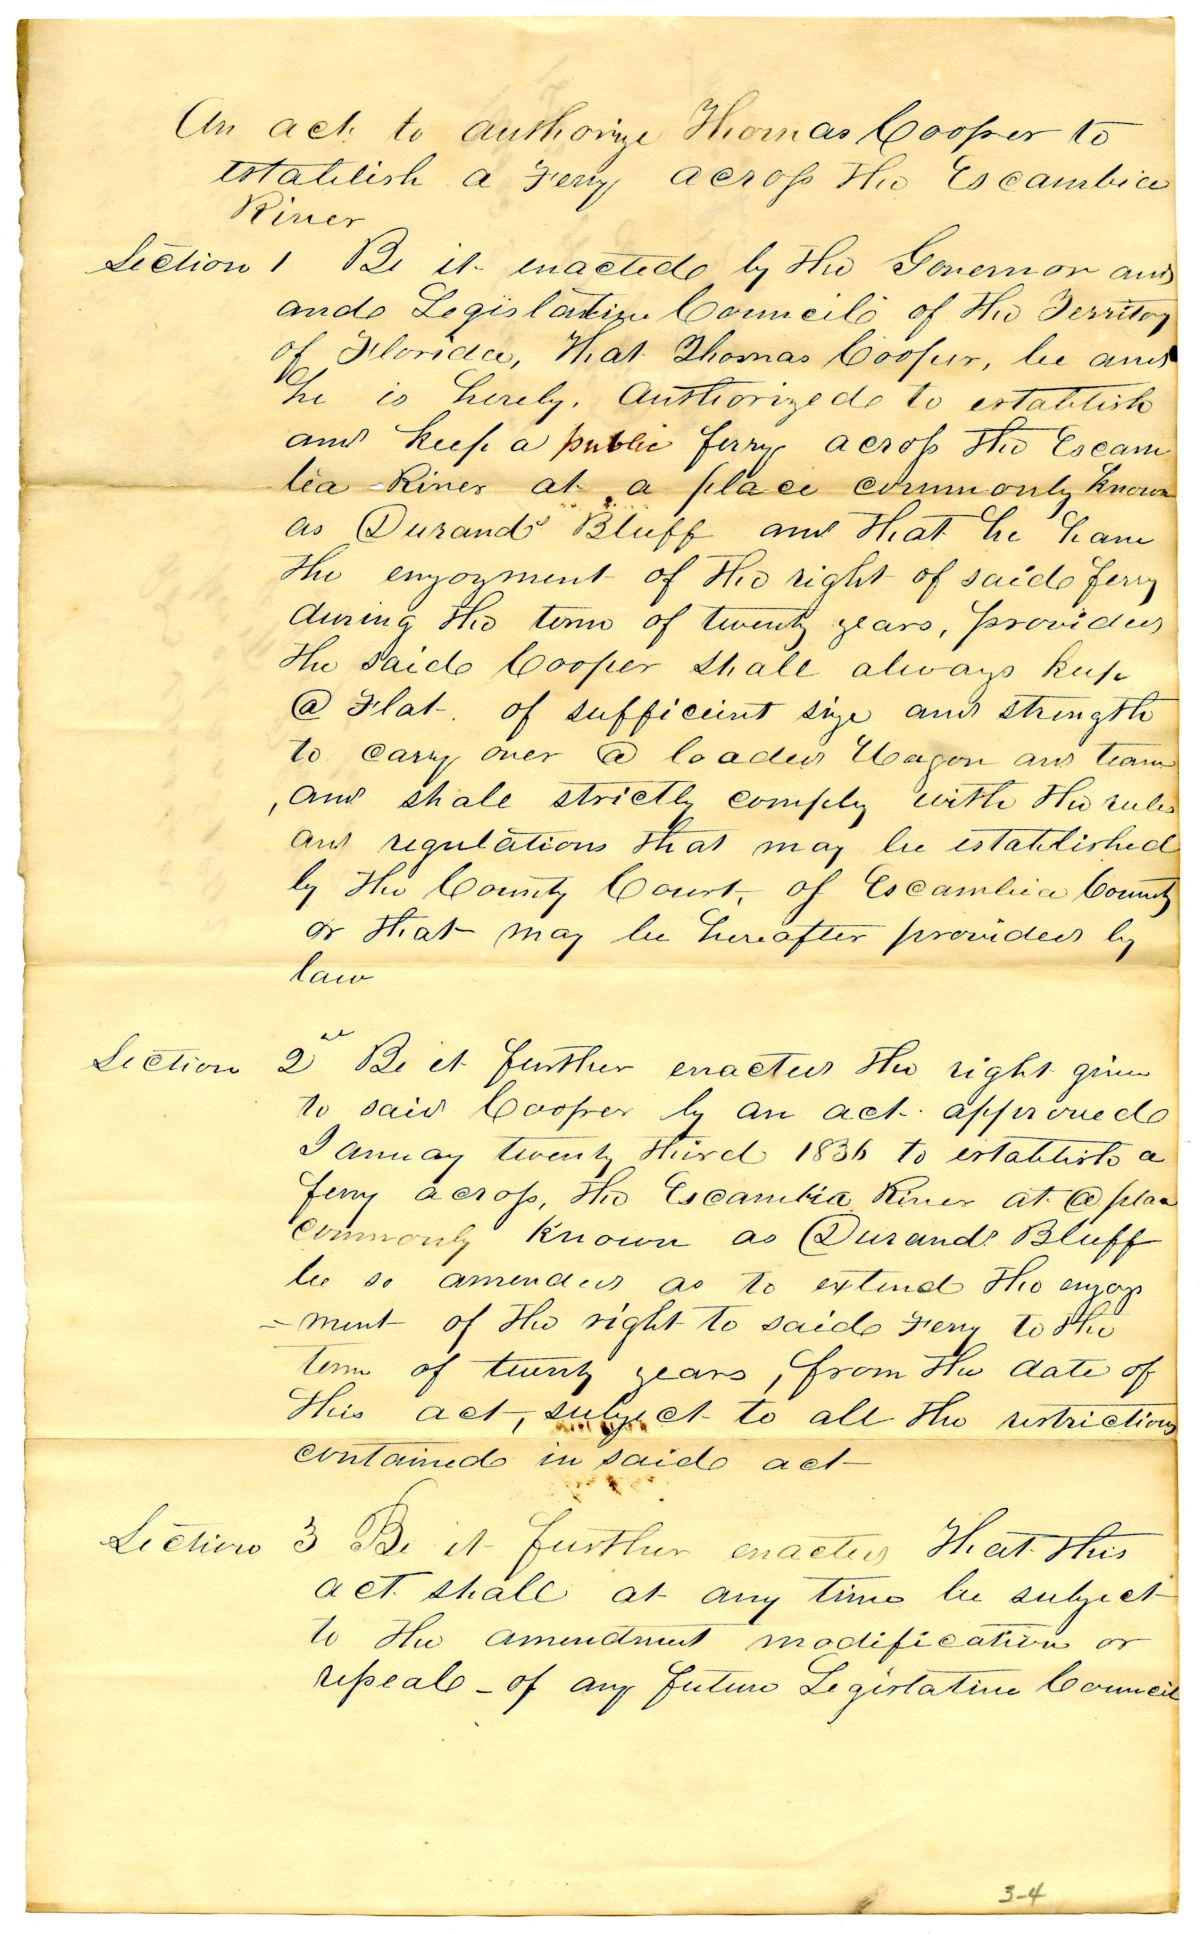 An act to authorize Thomas Cooper to
establish a Ferry across the Escambia
River
Section 1 Be it enacted by the Governor and
and Legislative Council of the Territory
of Florida, that Thomas Cooper, be and
he is hereby. authorized to establish
and keep a public ferry across the Escam
bia River at a place commonly known
as Durands Bluff and that he have
the enjoyment of the right of said ferry
during the term of twenty years, provided
the said Cooper shall always keep
a Flat. of sufficient size and strength
to carry over a loaded Wagon and team
, and shall strictly comply with the rules
and regulations that may be established
by the County Court, of Escambia County
or that may be hereafter provided by
law
Section 2nd Be it further enacted the right given
to said Cooper by an act. approved
Januay twenty third 1836 to establish a
ferry across, the Escambia River at a place
commonly known as Durands Bluff
be so amended as to extend the enjoy
=ment of the right to said Ferry to the
term of twenty years, from the date of
this act, subject to all the restrictions
contained in said act
Section 3 Be it further enacted that this
act shall at any time be subject
to the amendment modification or
repeal - of any future Legislative Council
3-4